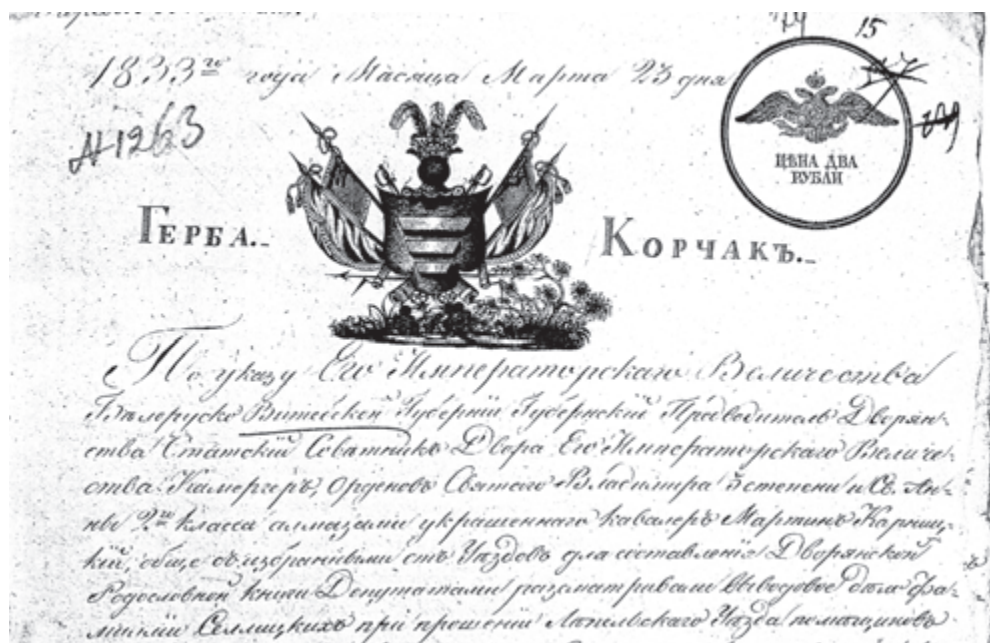 15
1833го года Мѣсяца Марта 23 дня
№ 1263
ЦѢНА ДВА
РУБЛИ
ГЕРБА.
КОРЧАКЪ.
По указу Его Императорскаго Величества
Бѣлоруско Витебской Губерніи Губернскій Предводитель Дворян-
ства Статскій Совѣтникъ Двора Его Императорскаго Величе-
ства Камергеръ, Орденовъ Святаго Владимира 3 степени и Св. Ан-
ны 2го класса алмазами украшеннаго Кавалеръ Мартинъ Карниц-
кій, обще съ избранными отъ Уѣздовъ для составленія Дворянской
Родословной Книги Депутатами разсматривали выводовое дѣло фа-
миліи Селицкихъ при прошеніи Лепельскаго Уѣзда помѣщиковъ